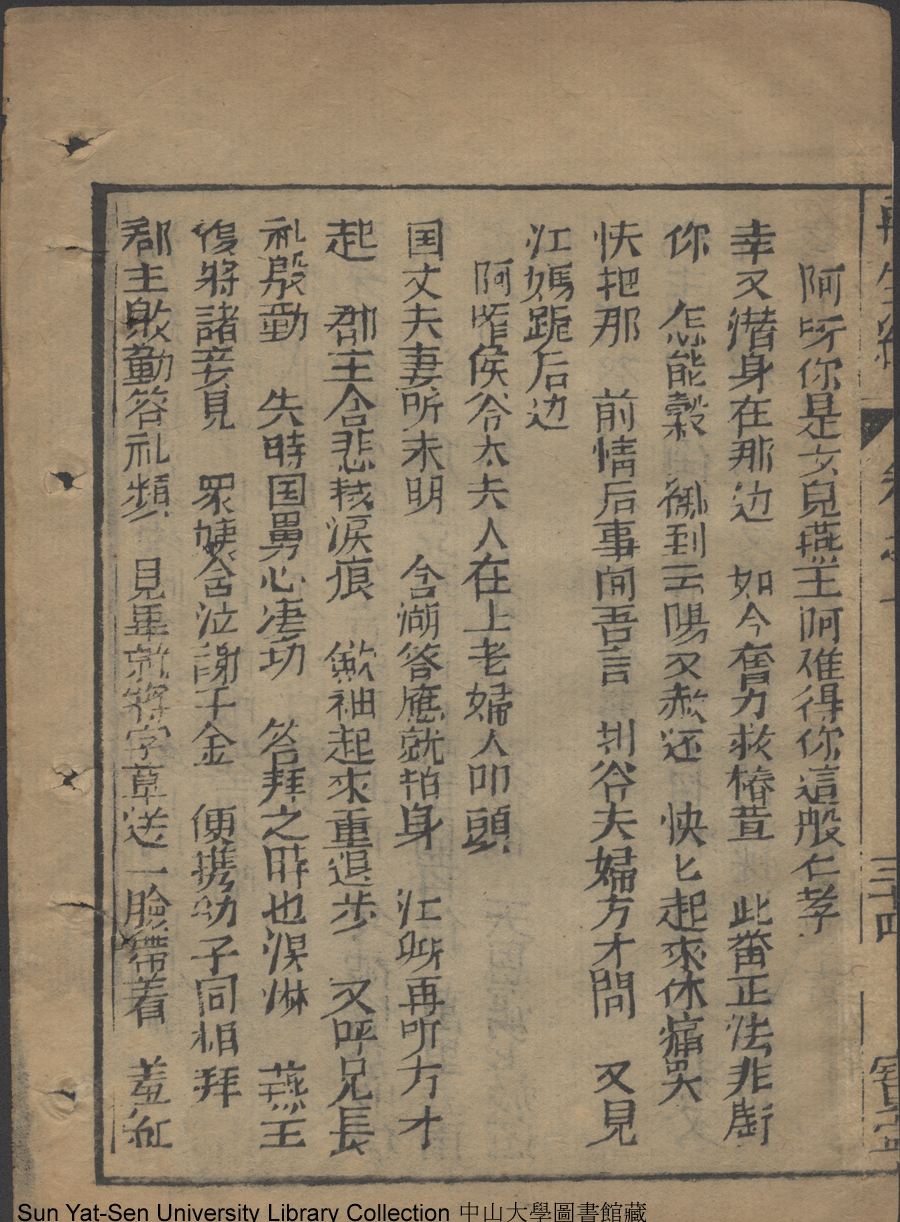 阿吓你是女兒燕王阿难得你這般仁孝
幸又潜身在那边 如今奮力救椿萱 此番正法非
你 怎能彀 御到云陽又赦还 快匕起來休痛哭
快把那 前情后事问吾言 刘爷夫婦方才問 又見
江媽跪后边
阿唯侯爷太夫人在上老婦人叩頭
国丈夫妻听未明 含湖答應就抬身 江 再听方才
起 郡主含悲 淚痕 歛袖起來重退步 又呼兄長
礼殷勤 失時国舅心凄功 答拜之时也淚淋 燕王
復將諸妾見 眾姨含泣謝千金 便携幼子同相拜
郡主殷勤答礼頻 見畢就將字草送 一臉帶着 羞紅
三十四
Sun Yat-Sen University Library Collection 中山大學圖書館藏